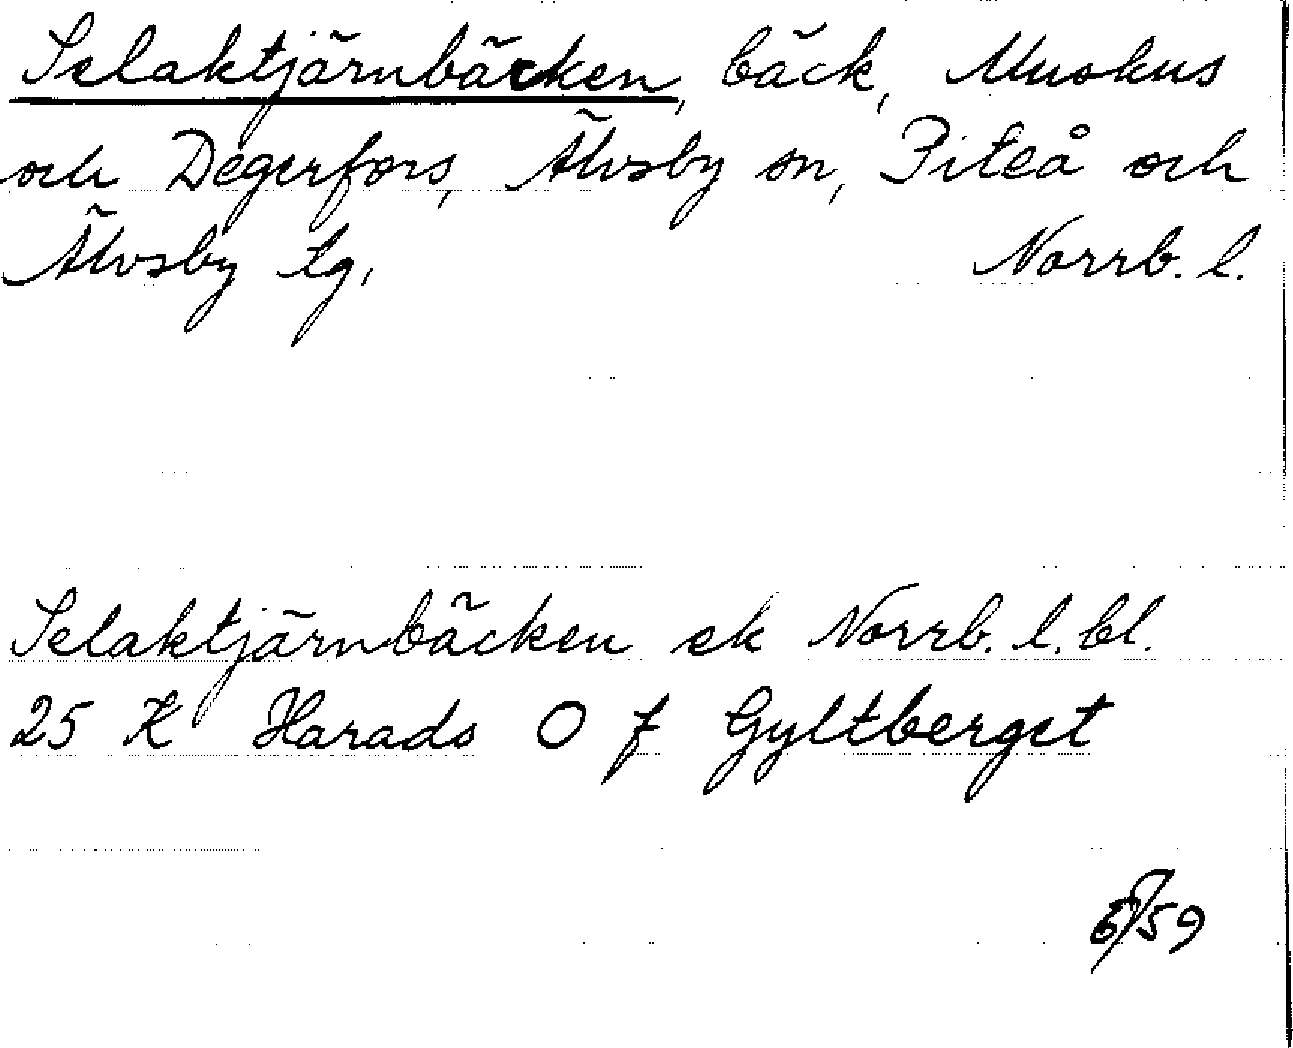 Selaktjärnbäcken, bäck, Muskus
och Degerfors, Älvsby sn, Piteå och
Älvsby tg, Norrb. l.
Selaktjärnbäcken ek Norrb. l. bl.
25 K Harads O f Gyltberget